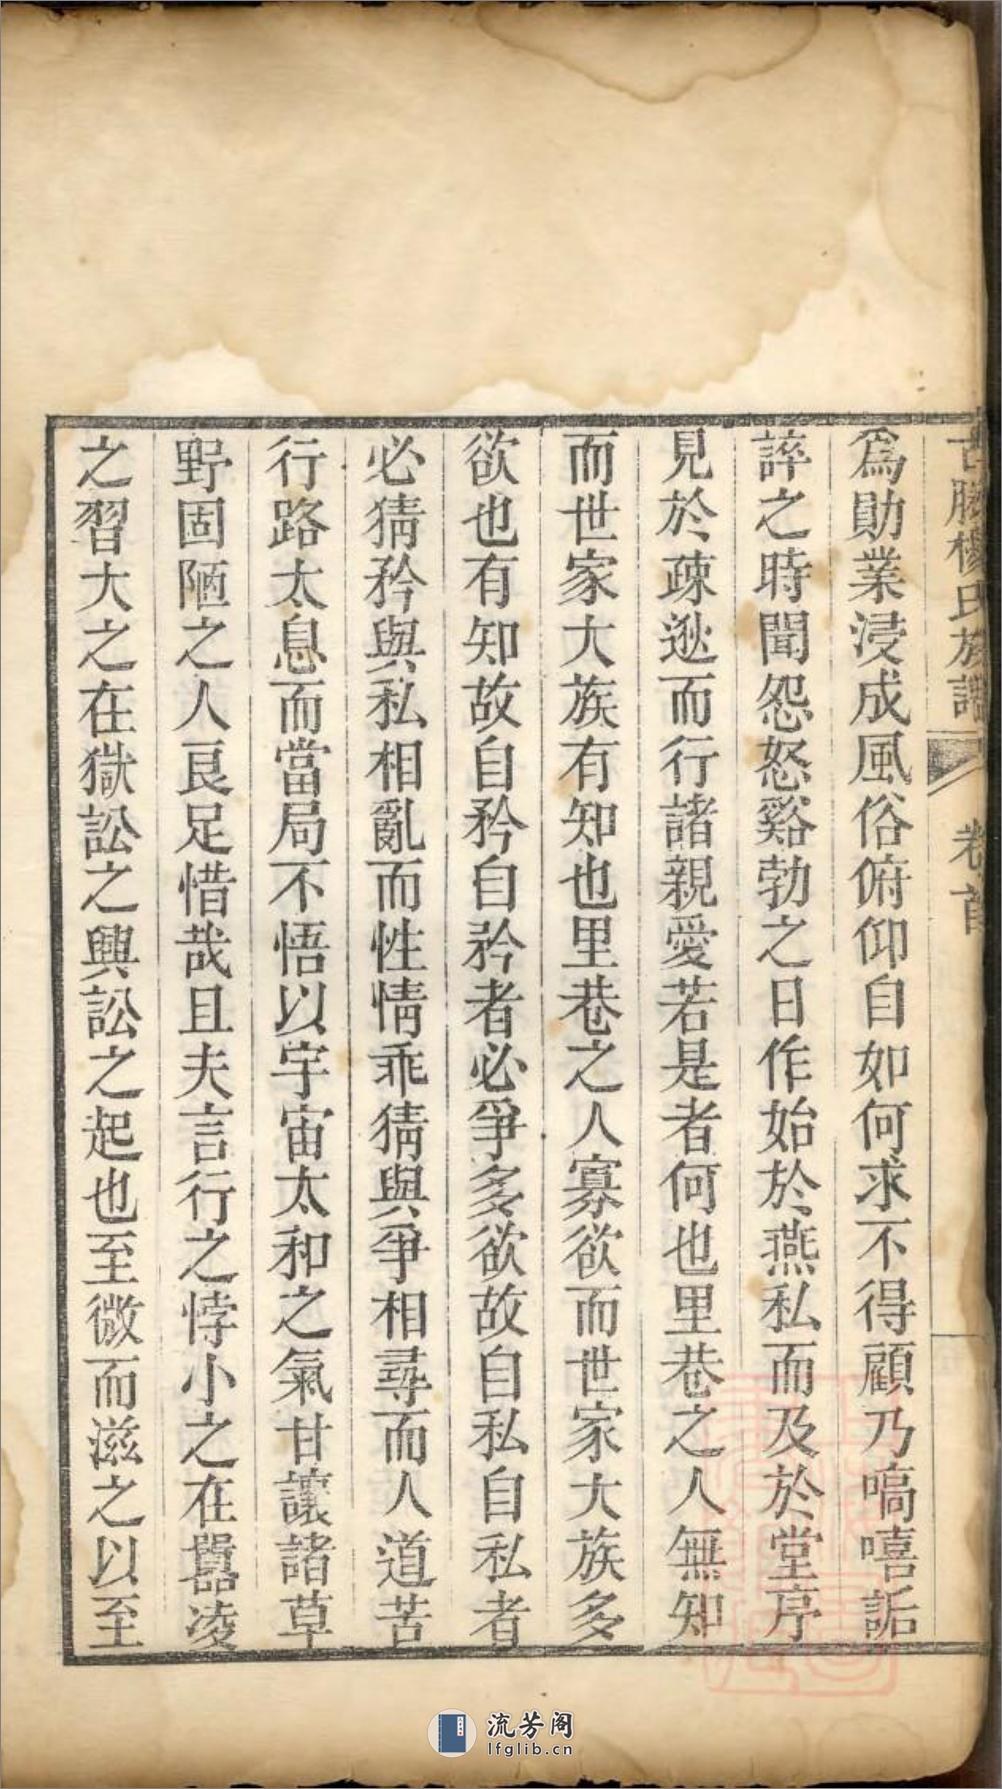 爲勛業浸成風俗俯仰自如何求不得顧乃嗃嘻詬
誶之時聞怨怒谿勃之日作始於燕私而及於堂序
見於疎逖而行諸親愛若是者何也里巷之人無知
而世家大族有知也里巷之人寡欲而世家大族多
欲也有知故自矜自矜者必爭多欲故自私自私者
必猜矜與私相亂而性情乖猜與爭相尋而人道苦
行路太息而當局不悟以宇宙太和之氣甘讓諸草
野固陋之人良足惜哉且夫言行之悖小之在囂凌
之習大之在獄訟之興訟之起也至微而滋之以至
楊氏族譜
卷首
流芳阁
lfglib.cn